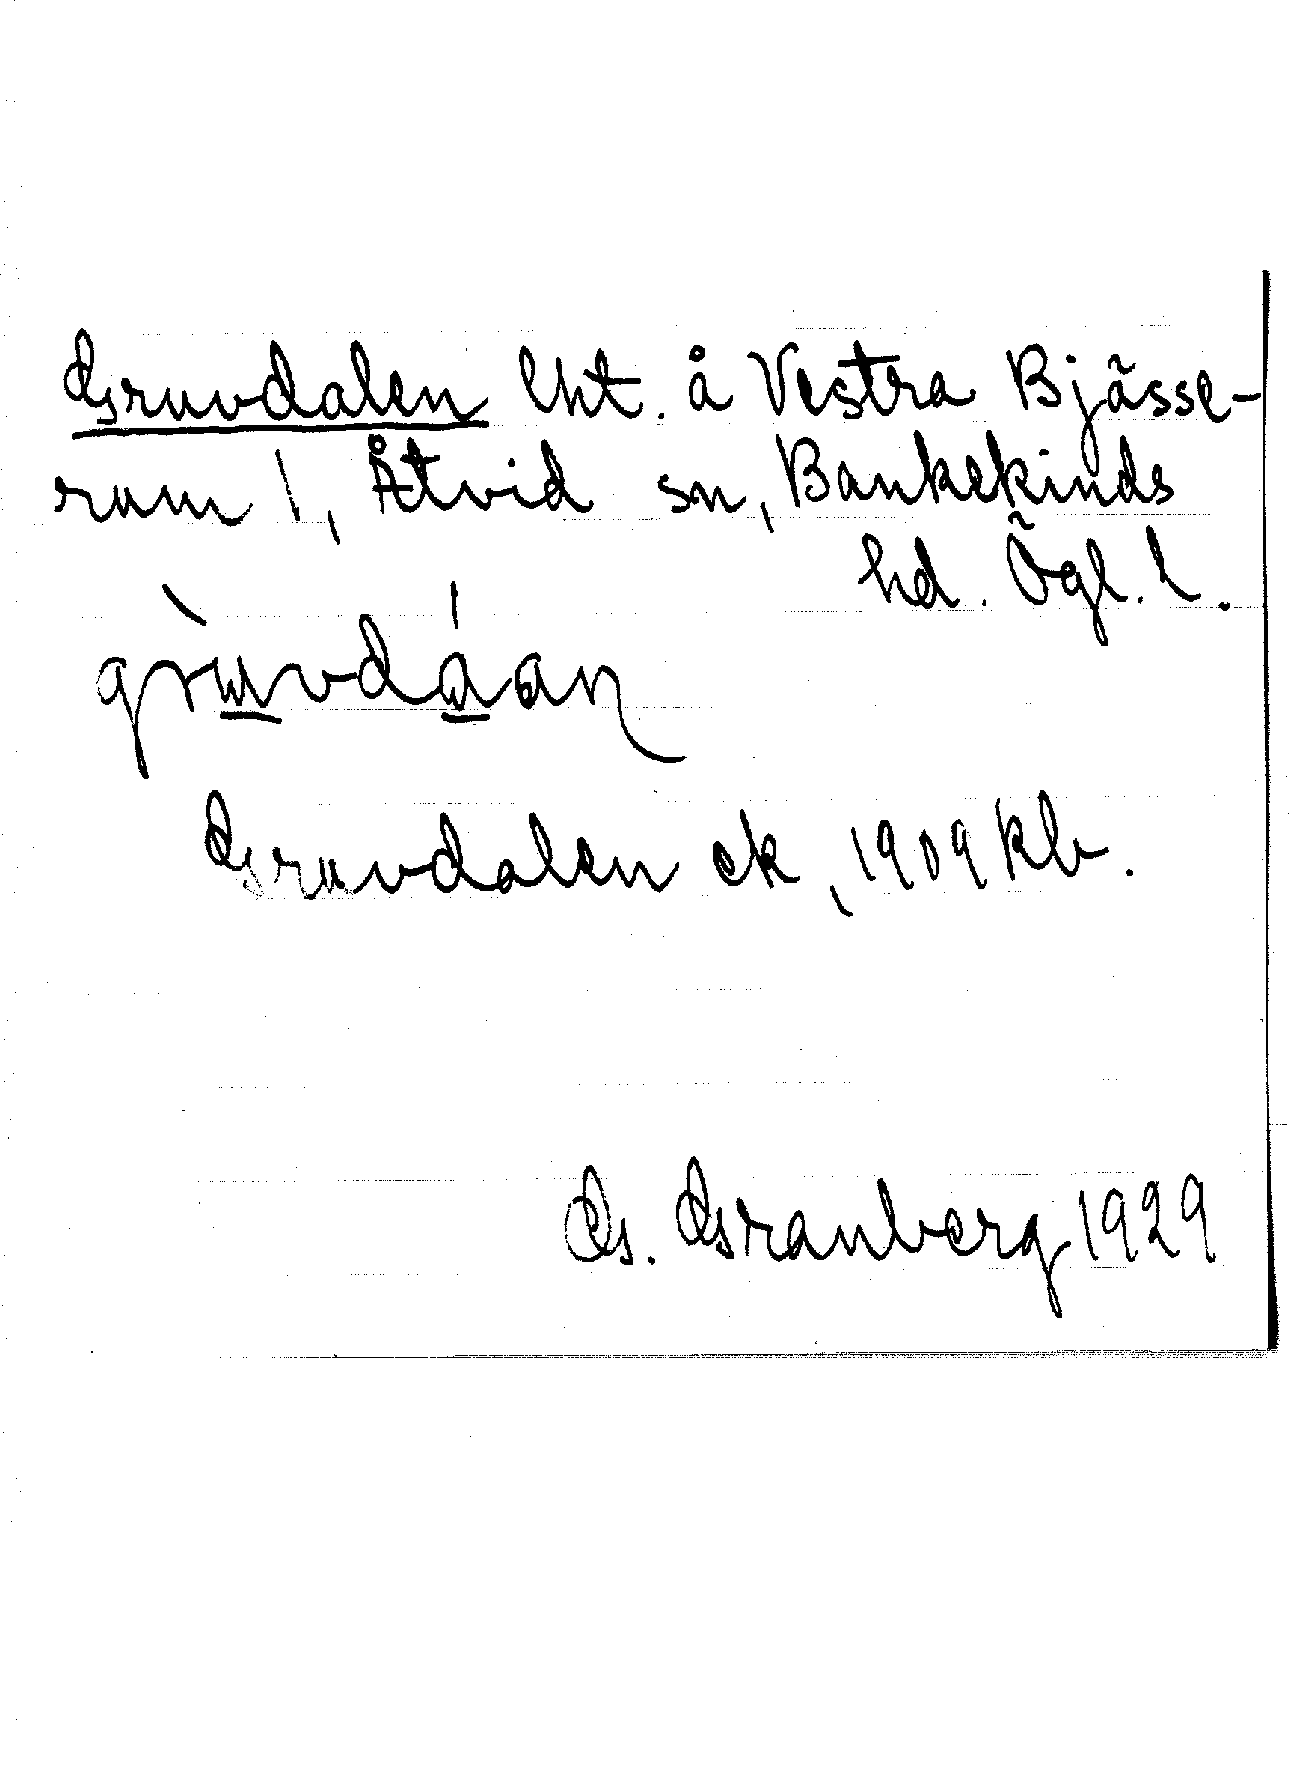 Gruvdalen lht. å Vestra Bjässe-
rum 1, Åtvid sn, Bankekinds
hd. Ögl. l.
gru̲vda̲an
Gruvdalen ek, 1909 kb.
G. Granberg 1929